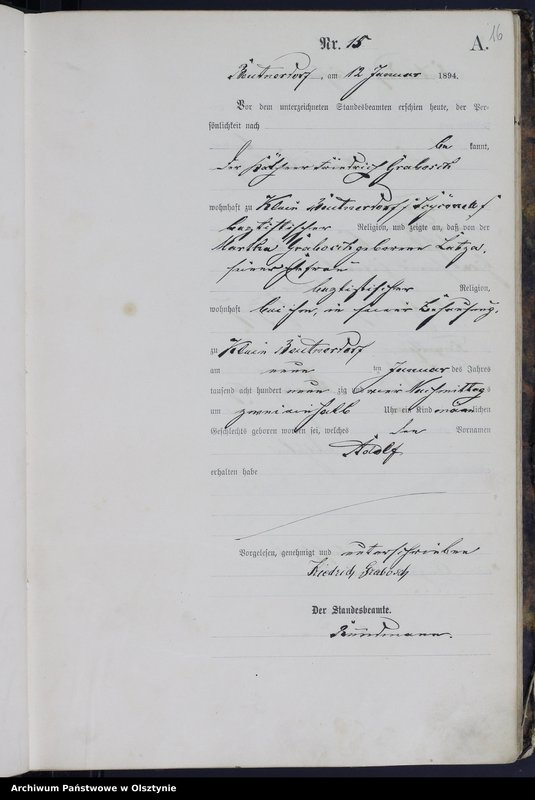 16
Nr. 15 A.
Beutnerdorf, am 12 Januar 1894.
Vor dem unterzeichneten Standesbeamten erschien heute, der Per-
sönlichkeit nach
be kannt,
der Käthner Friedrich Grabosch
wohnhaft zu Klein Beutnerdorf
baptistischer Religion, und zeigte an, daß von der
Martha Grabosch geborenen Latza,
seiner Ehefrau
baptistischer Religion,
wohnhaft bei ihm, in seiner Behausung,
zu Klein Beutnerdorf
am neun ten Januar des Jahres
tausend acht hundert neun zig vier Nachmittags
um zweieinhalb Uhr ein Kind männlichen
Geschlechts geboren worden sei, welches den Vornamen
Adolf
erhalten habe
Vorgelesen, genehmigt und unterschrieben
Friedrich Grabosch
Der Standesbeamte.
Archiwum Państwowe w Olsztynie